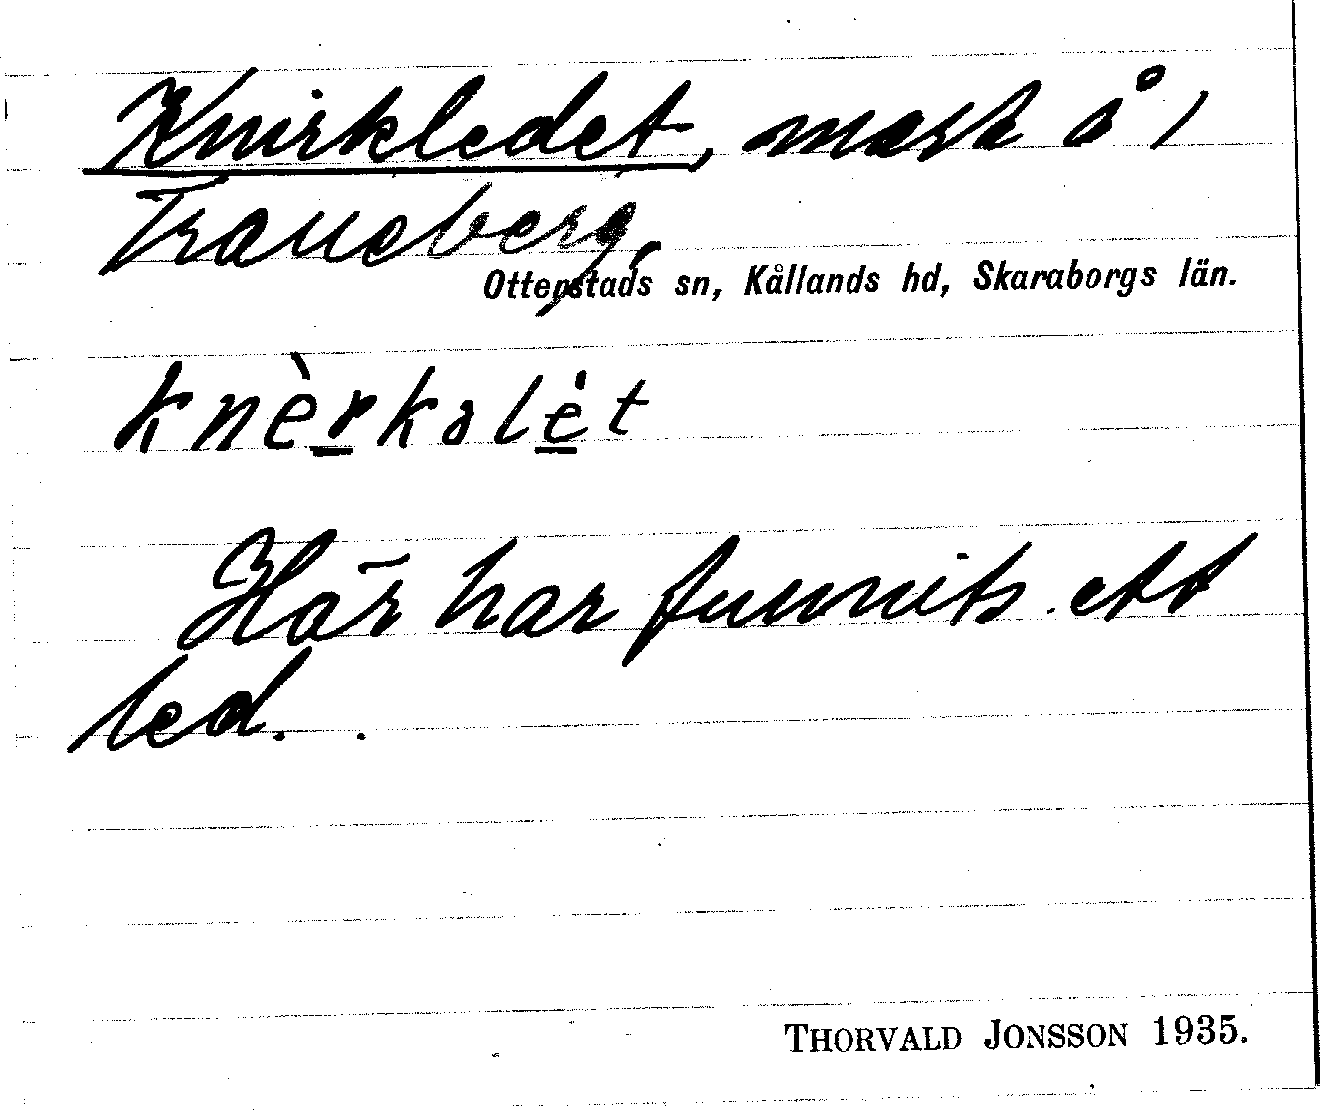 Knirkledet, mark å 1
Traneberg,
Ottenstads sn, Kållands hd, Skaraborgs län.
knèrkəlèt
Här har funnits ett
led.
THORVALD JONSSON 1935.